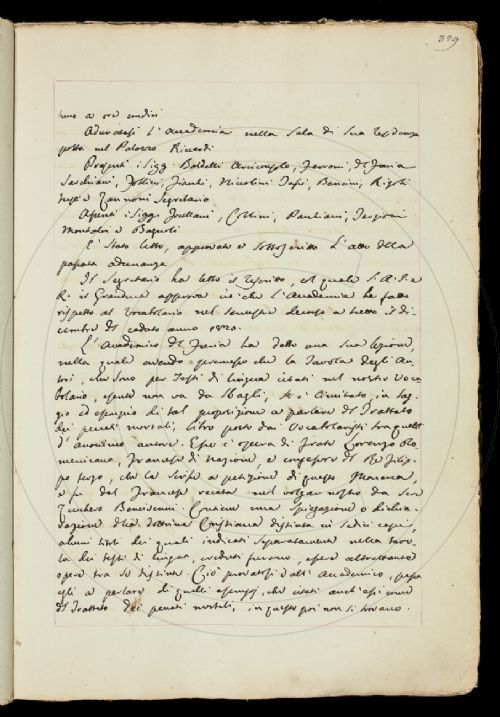 399
a ore undici
Adunatasi l'Accademia nella Sala di Sua residenza
posta nel Palazzo Riccardi
Presenti i Sigg. Baldelli Arciconsolo, Ferroni, del Furia
Sarchiani, Follini, Zanti, Nicolini, Bencini, Rigoli
e Zannoni Segretario
Assenti i Sigg. Collini, Targioni
e Bagnoli
È stato letto, approvato e sottoscritto l'atto della
passata adunanza
Il Segretario ha letto il rescritto, col quale S. A. I. e
R. il Granduca approva ciò che l'Accademia ha fatto
rispetto al Vocabolario nel semestre decorso a tutto il di-
cembre del caduto anno 1820.
L'Accademico del Furia ha detto una sua lezione,
nella quale avendo premesso che la Tavola degli Au-
tori, che sono per Testi di lingua citati nel nostro Voca-
bolario, esente non va da sbagli, si è limitato, in sag-
gio ed esempio di tal proposizione a parlare del Trattato
dei peccati mortali, libro posto dai Vocabolaristi tra quelli
d'anonimo autore. Esso è opera di frate Lorenzo Do-
menicano, Francese di nazione, e confessore del Re Filip-
po terzo, che la scrisse a petizione di questo Monarca,
e fu dal Francese recata nel volgar nostro da Sere
Zucchero Bencivenni. Contiene una spiegazione o dichia-
razione della dottrina Cristiana distinta in sedici capi,
alcuni titoli dei quali indicati separatamente nella tavo-
la dei testi di lingua, creduti furono, essere altrettante
opere tra sé distinte. Ciò provatosi dall'Accademico, passa
egli a parlare di quelli esempj, che citati anch'essi come
del Trattato dei peccati mortali, in questo poi non si trovano.